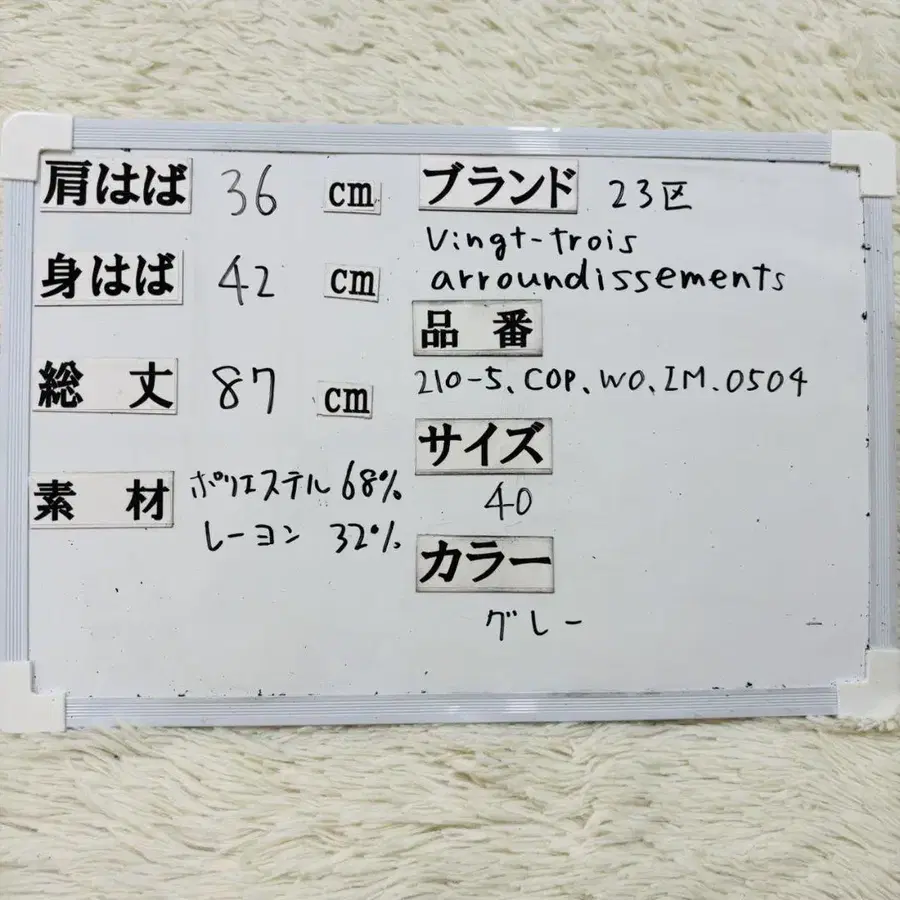 肩はば 36 cm
身はば 42 cm
総丈 87 cm
素材 ポリエステル 68%
レーヨン 32%
ブランド 23区
Vingt-trois
arroundissements
品番
210-5、COP、WO、IM、0504
サイズ
40
カラー
グレー